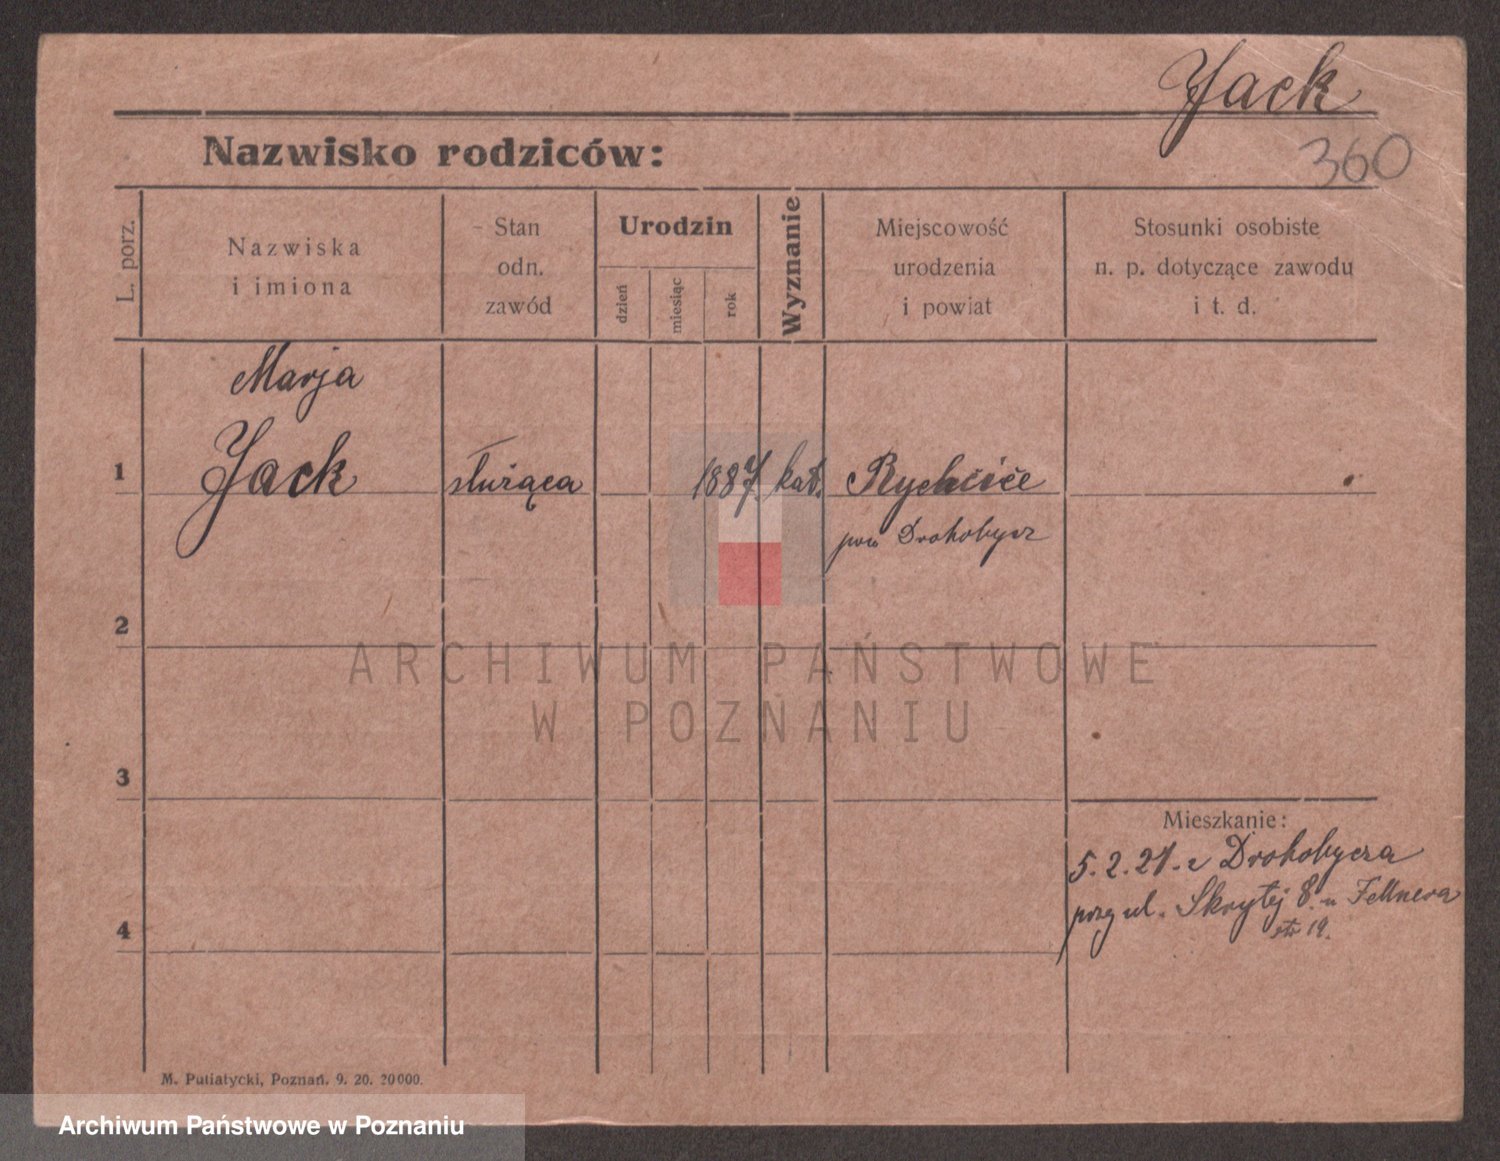 Jack
360
Nazwisko rodziców:
L. porz.
Nazwiska
i imiona
Stan
odn.
zawód
Urodzin
dzień
miesiąc
rok
Wyznanie
Miejscowość
urodzenia
i powiat
Stosunki osobiste
n. p. dotyczące zawodu
i t. d.
Marja
1 Jack służąca 1887. kat. Rychcice
pow Drohobycz
2
3
4
Mieszkanie:
5.2.21. z Drohobycza
przy ul. Skrytej 8. u Fellnera
str 19.
M. Putiatycki, Poznań. 9. 20. 20000.
ARCHIWUM PAŃSTWOWE
W POZNANIU
Archiwum Państwowe w Poznaniu